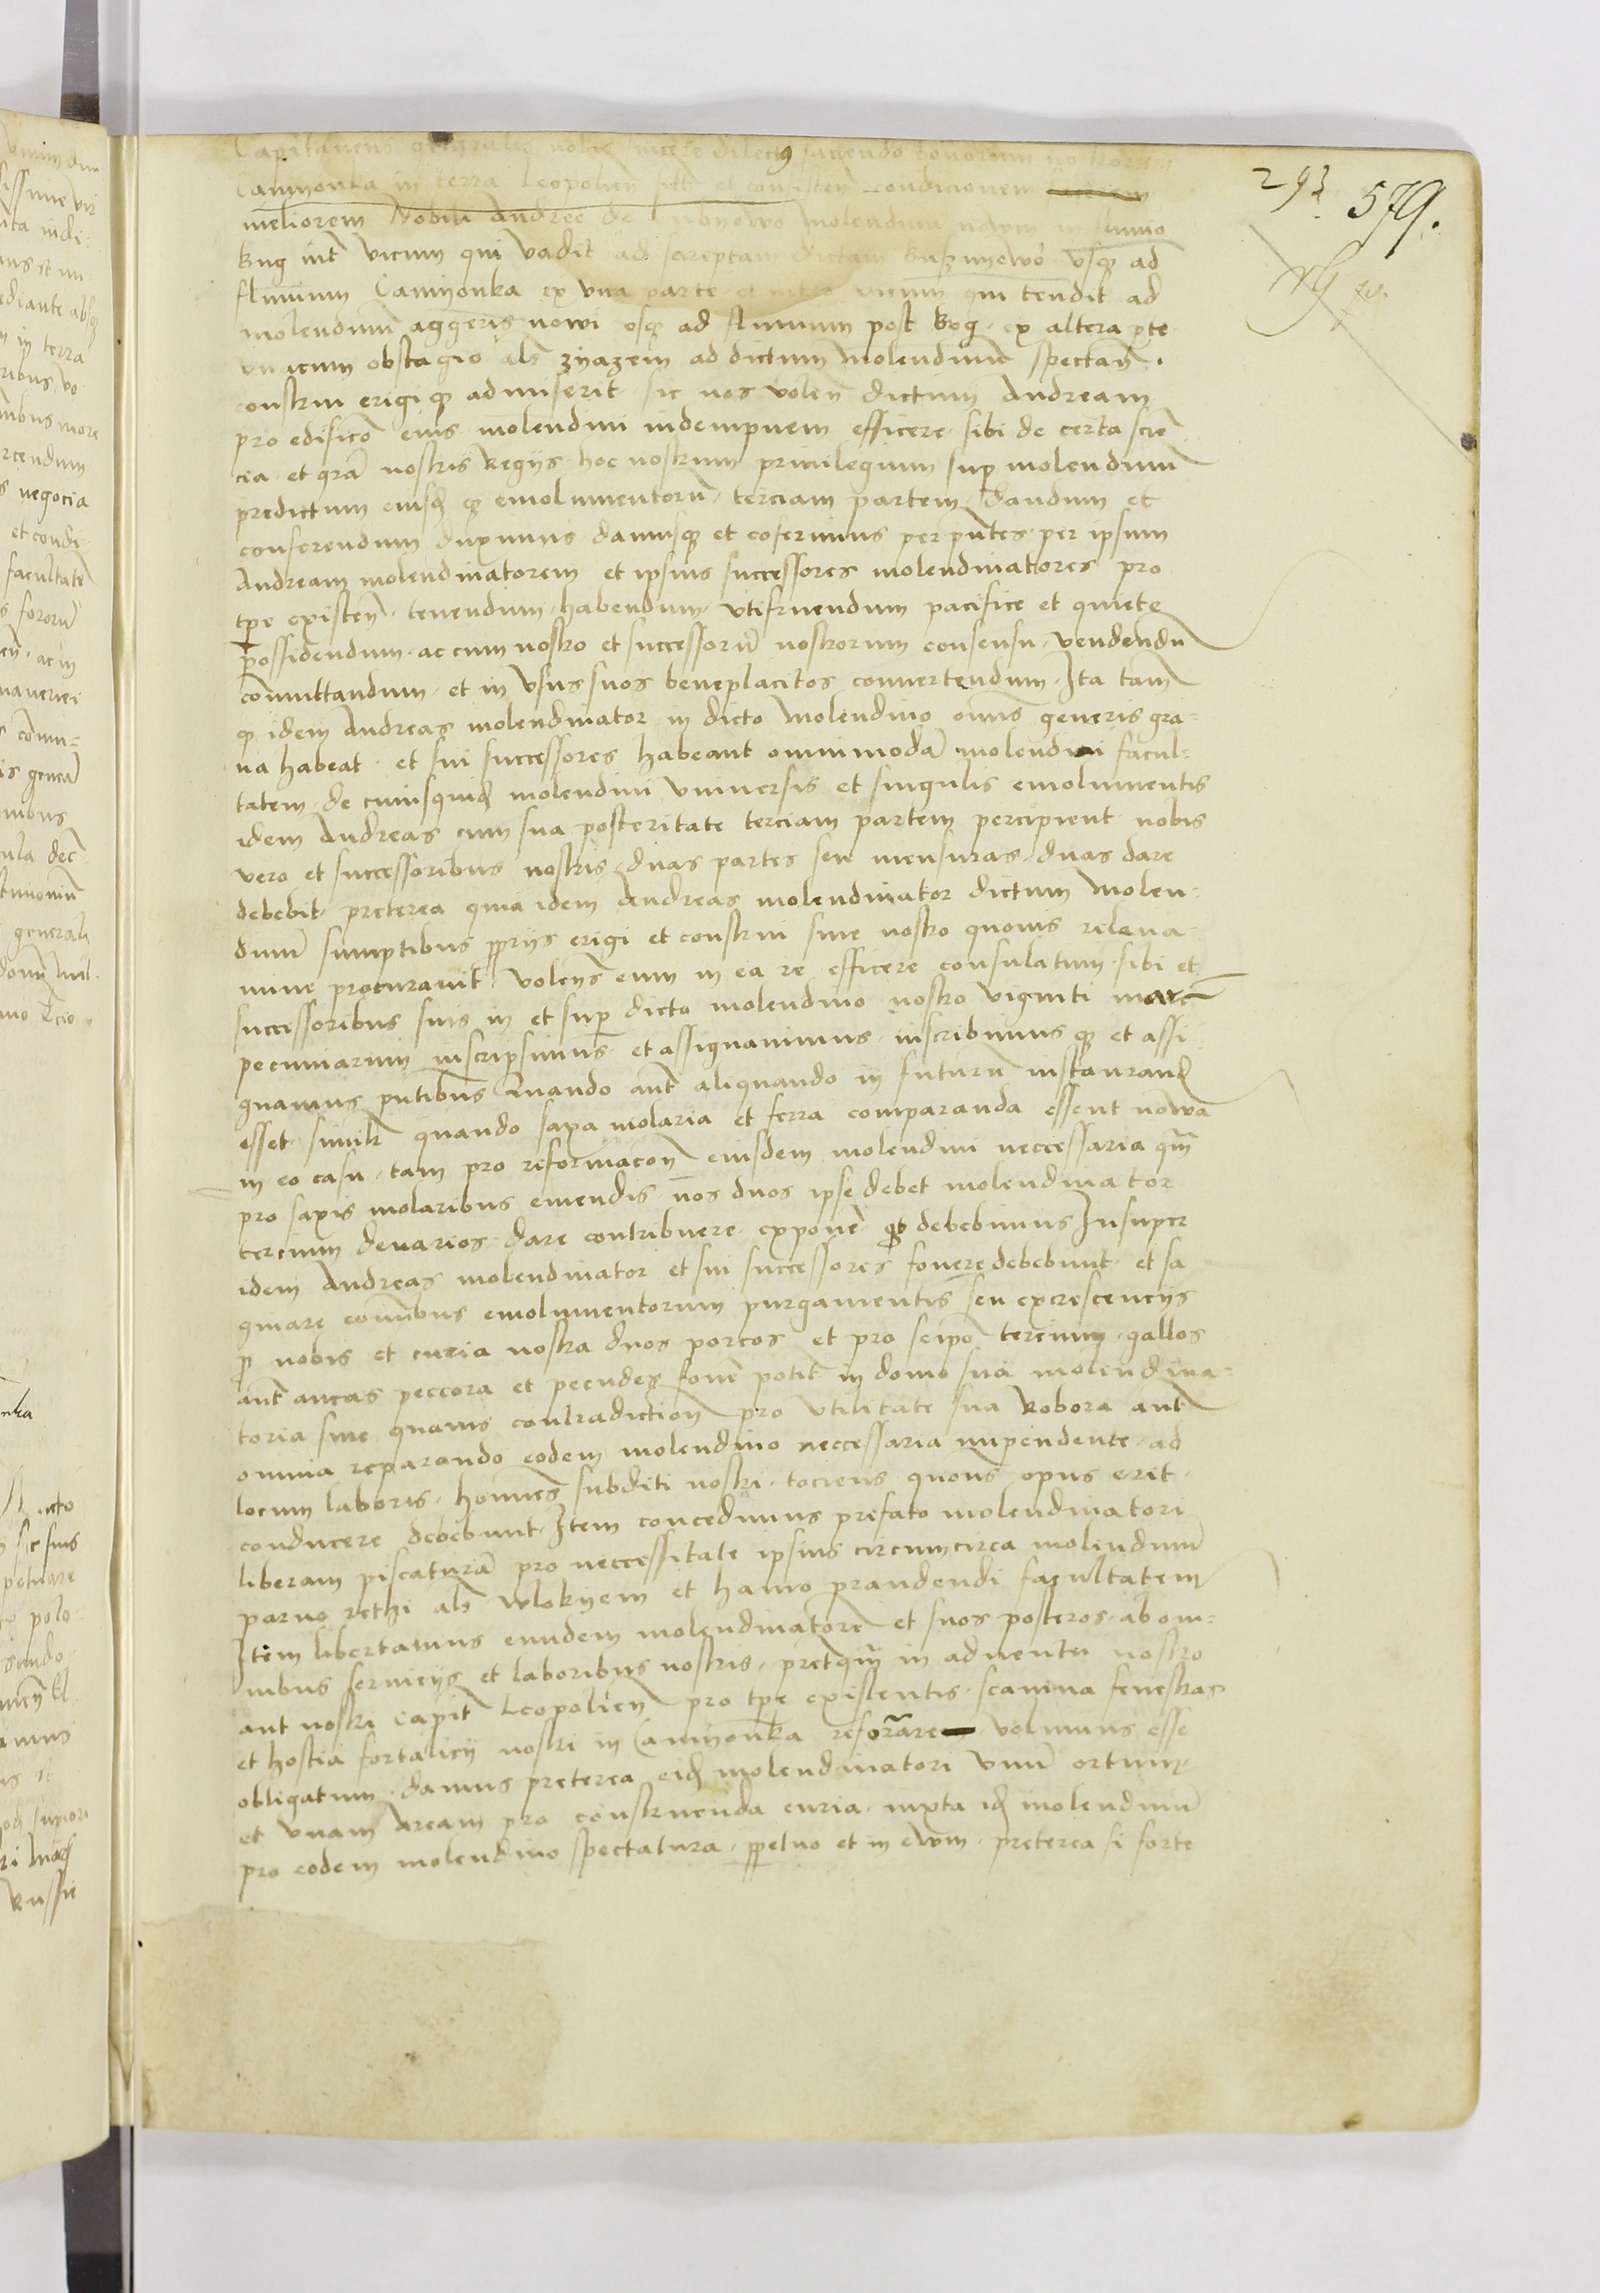 Capitaneus generalis nobis sincere dilectus faciendo bonorum nostrorum
Camyonka in terra Leopolien sitt et consisten condicionem
meliorem Nobili Andree de molendinu novum in fluvio
Bug int vicum qui vadit ad dictam usq ad
fluvium Camyonka ex una parte et inter vicum qui tendit ad
molendinu aggeris nowi usq ad fluvium post Bog ex altera pte
unacum obstagio als znazem ad dictum molendinu spectan.
construi erigiq admiserit sic nos volen dictum Andream
pro edificio eius molendini indempnem efficere sibi de certa scien
cia et gra nostris Regijs hoc nostrum privilegium sup molendinu
predictum eiusq emolumentoru terciam partem dandum et
conferendum duximus damusq et coferimus per pntes per ipsum
Andream molendinatorem et ipsius successores molendinatores pro
tpe existen tenendum habendum utifruendum pacifice et quiete
possidendum ac cum nostro et successoru nostrorum consensu vendendu
comuttandum et in usus suos beneplacitos convertendum Ita tam
q idem Andreas molendinator in dicto molendino omis generis gra=
na habeat et sui successores habeant omnimoda molendini facul=
tatem de cuiusquid molendini universis et singulis emolumentis
idem Andreas cum sua posteritate terciam partem percipient nobis
vero et successoribus nostris duas partes seu mensuras duas dare
debebit preterea quia idem Andreas molendinator dictum molen=
dinu sumptibus pprijs erigi et construi sine nostro quovis releva
mine procuravit volens eum in ea re efficere consulatum sibi et
successoribus suis in et sup dicto molendino nostro viginti marc
pecuniarum inscripsimus et assignavimus inscribimusq et assi
gnamus pntibus Quando aut aliquando in futuru instaurand
esset simlr quando saxa molaria et ferra comparanda essent nowa
in eo casu tam pro reformacon eiusdem molendini neccessaria qm
pro saxis molaribus emendis nos duos ipse debet molendinator
tercium denarios dare contribuere exponere debebimus Insuper
idem Andreas molendinator et sui successores fovere debebunt et sa
ginare emolumentorum purgamentis seu excrescencijs
p nobis et curia nostra duos porcos et pro seipo tercium gallos
aut aucas peccora et pecudes fove potit in domo sua molendina=
toria sine quavis contradiction pro utilitate sua Robora aut
omnia reparando eodem molendino neccessaria impendente ad
locum laboris homines subditi nostri tociens quociens opus erit
conducere debebunt Item concedimus prefato molendinatori
liberam piscatura pro neccessitate ipsius circumcirca molendinu
parvo rethi als wlokyem et hamo prandendi facultatem
Item libertamus eundem molendinatore et suos posteros ab om=
nibus servicijs et laboribus nostris pretqm in adventu nostro
aut nostri Capit Leopolien pro tpe existentis scamna fenestras
et hostia fortalicij nostri in Camyonka reformare volumus esse
obligatum damus preterea eid molendinatori unu ortum
et unam aream pro construenda curia iuxta id molendinu
pro eodem molendino spectatura ppetuo et in ewm preterea si forte
293 579.